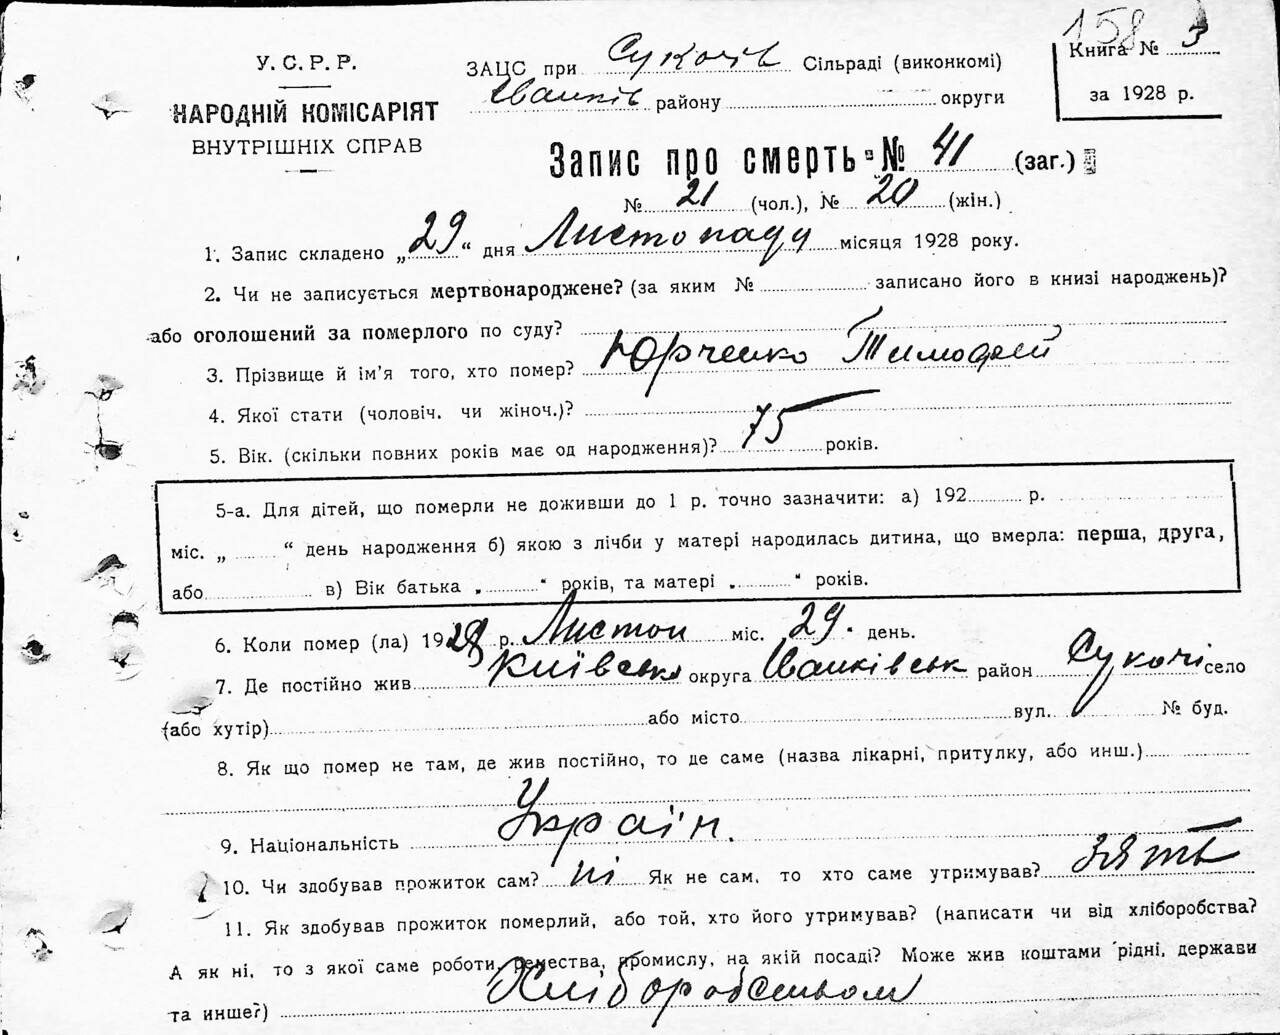 158
У.С.Р.Р.
НАРОДНІЙ КОМІСАРІЯТ
ВНУТРІШНІХ СПРАВ
ЗАЦС при Сукачів Сільраді (виконкомі)
Іванків району округи
Книга № 3
за 1928 р.
Запис про смерть № 41 (заг.)
№ 21 (чол.), № 20 (жін.)
1. Запис складено „29“ дня Листопаду місяця 1928 року.
2. Чи не записується мертвонароджене? (за яким № записано його в книзі народжень)?
або оголошений за померлого по суду?
3. Прізвище й ім'я того, хто помер? Юрченко Тимофей
4. Якої стати (чоловіч. чи жіноч.)?
5. Вік. (скільки повних років має од народження)? 75 років.
5-а. Для дітей, що померли не доживши до 1 р. точно зазначити: а) 192 р.
міс. „ “ день народження б) якою з лічби у матері народилась дитина, що вмерла: перша, друга,
або в) Вік батька „ “ років, та матері „ “ років.
6. Коли помер (ла) 1928 р. Листоп міс. 29 день.
7. Де постійно жив Київська округа Іванківськ район Сукачі село
(або хутір) або місто вул. № буд.
8. Як що помер не там, де жив постійно, то де саме (назва лікарні, притулку, або инш.)
9. Національність Україн.
10. Чи здобував прожиток сам? ні Як не сам, то хто саме утримував? зять
11. Як здобував прожиток померлий, або той, хто його утримував? (написати чи від хліборобства?
А як ні, то з якої саме роботи, ремества, промислу, на якій посаді? Може жив коштами рідні, держави
та инше?) Хліборобством